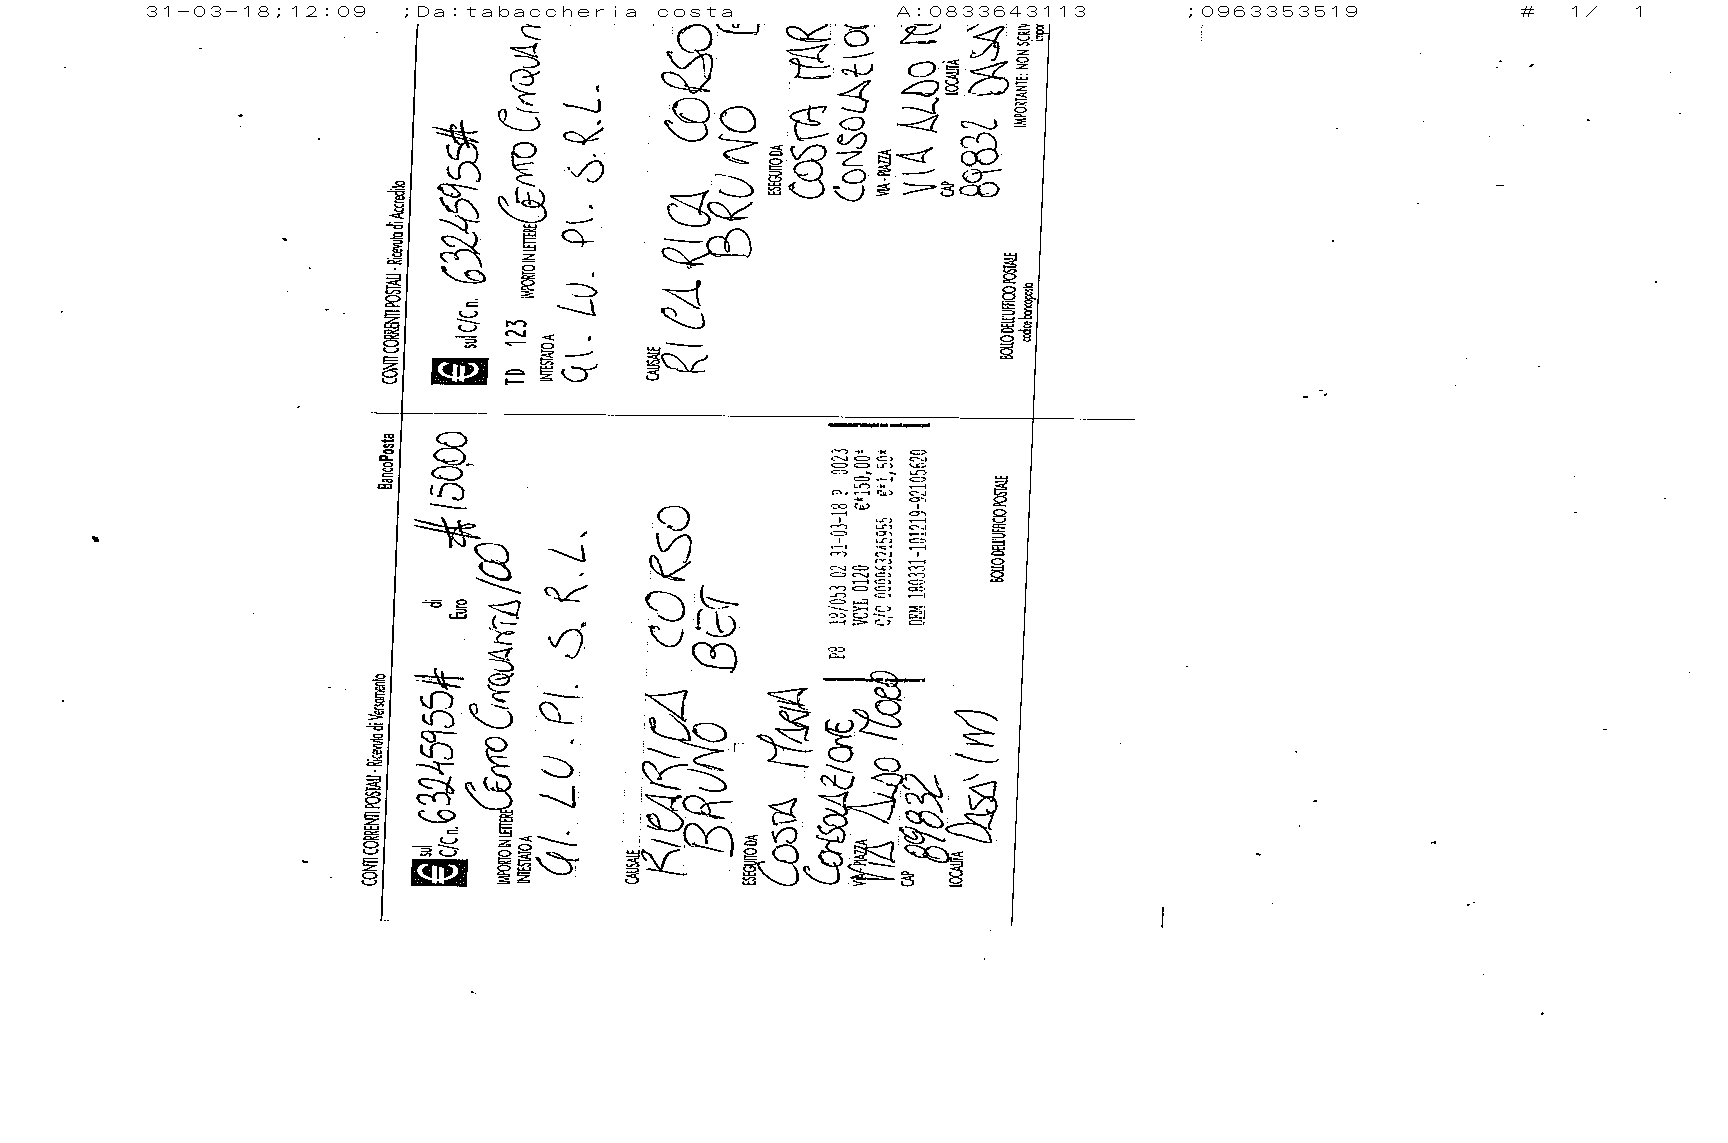 31-03-18;12:09 ;Da:tabaccheria costa A:0833643113 ;0963353519 # 1/ 1
CONTI CORRENTI POSTALI - Ricevuta di Versamento BancoPosta
€ sul C/C n. 63245955# di Euro #150,00
IMPORTO IN LETTERE CENTO CINQUANTA/00
INTESTATO A
GI. LU. PI. S.R.L.
CAUSALE
RICARICA CORSO
BRUNO BET
ESEGUITO DA
COSTA MARIA
CONSOLAZIONE
VIA - PIAZZA
VIA ALDO MORO
CAP
89832
LOCALITÀ
DASA'
18/053 02 31-03-18 P 0023
VCYL 0120 €*150,00*
C/C 000063245955 €*1,50*
BOLLO DELL'UFFICIO POSTALE
CONTI CORRENTI POSTALI - Ricevuta di Accredito
€ sul C/C n. 63245955#
TD 123 IMPORTO IN LETTERE CENTO CINQUAN
INTESTATO A
GI. LU. PI. S.R.L.
CAUSALE
RICARICA CORSO
BRUNO
ESEGUITO DA
COSTA MAR
CONSOLAZION
VIA - PIAZZA
VIA ALDO M
CAP LOCALITÀ
89832 DASA'
BOLLO DELL'UFFICIO POSTALE
codice bancoposta
IMPORTANTE: NON SCRIV